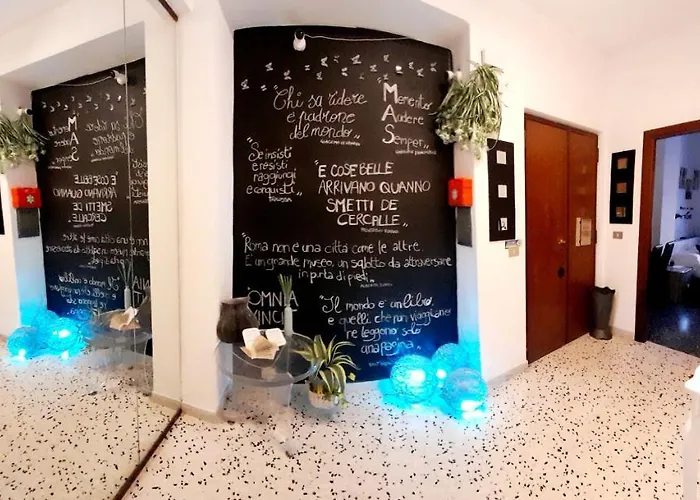 "Chi sa ridere
è padrone
del mondo"
Memento
Audere
Semper
Se insisti
e resisti
raggiungi
e conquisti
"E COSE BELLE
ARRIVANO QUANNO
SMETTI DE
CERCALLE"
Roma non è una città come le altre.
È un grande museo, un salotto da attraversare
in punta di piedi.
OMNIA
VINCI
"Il mondo è un libro
e quelli che non viaggiano
ne leggono solo
una pagina"